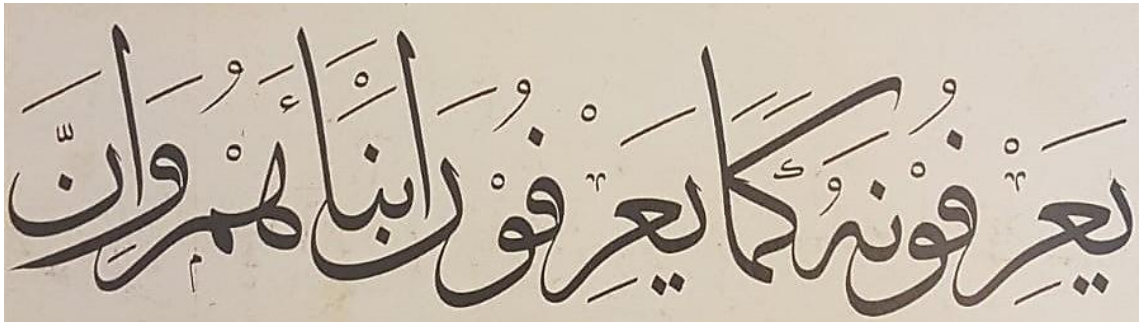 يَعْرِفُوْنَهُ كَمَا يَعْرِفُوْنَ اَبْنَاۤءَهُمْ وَاِنَّ